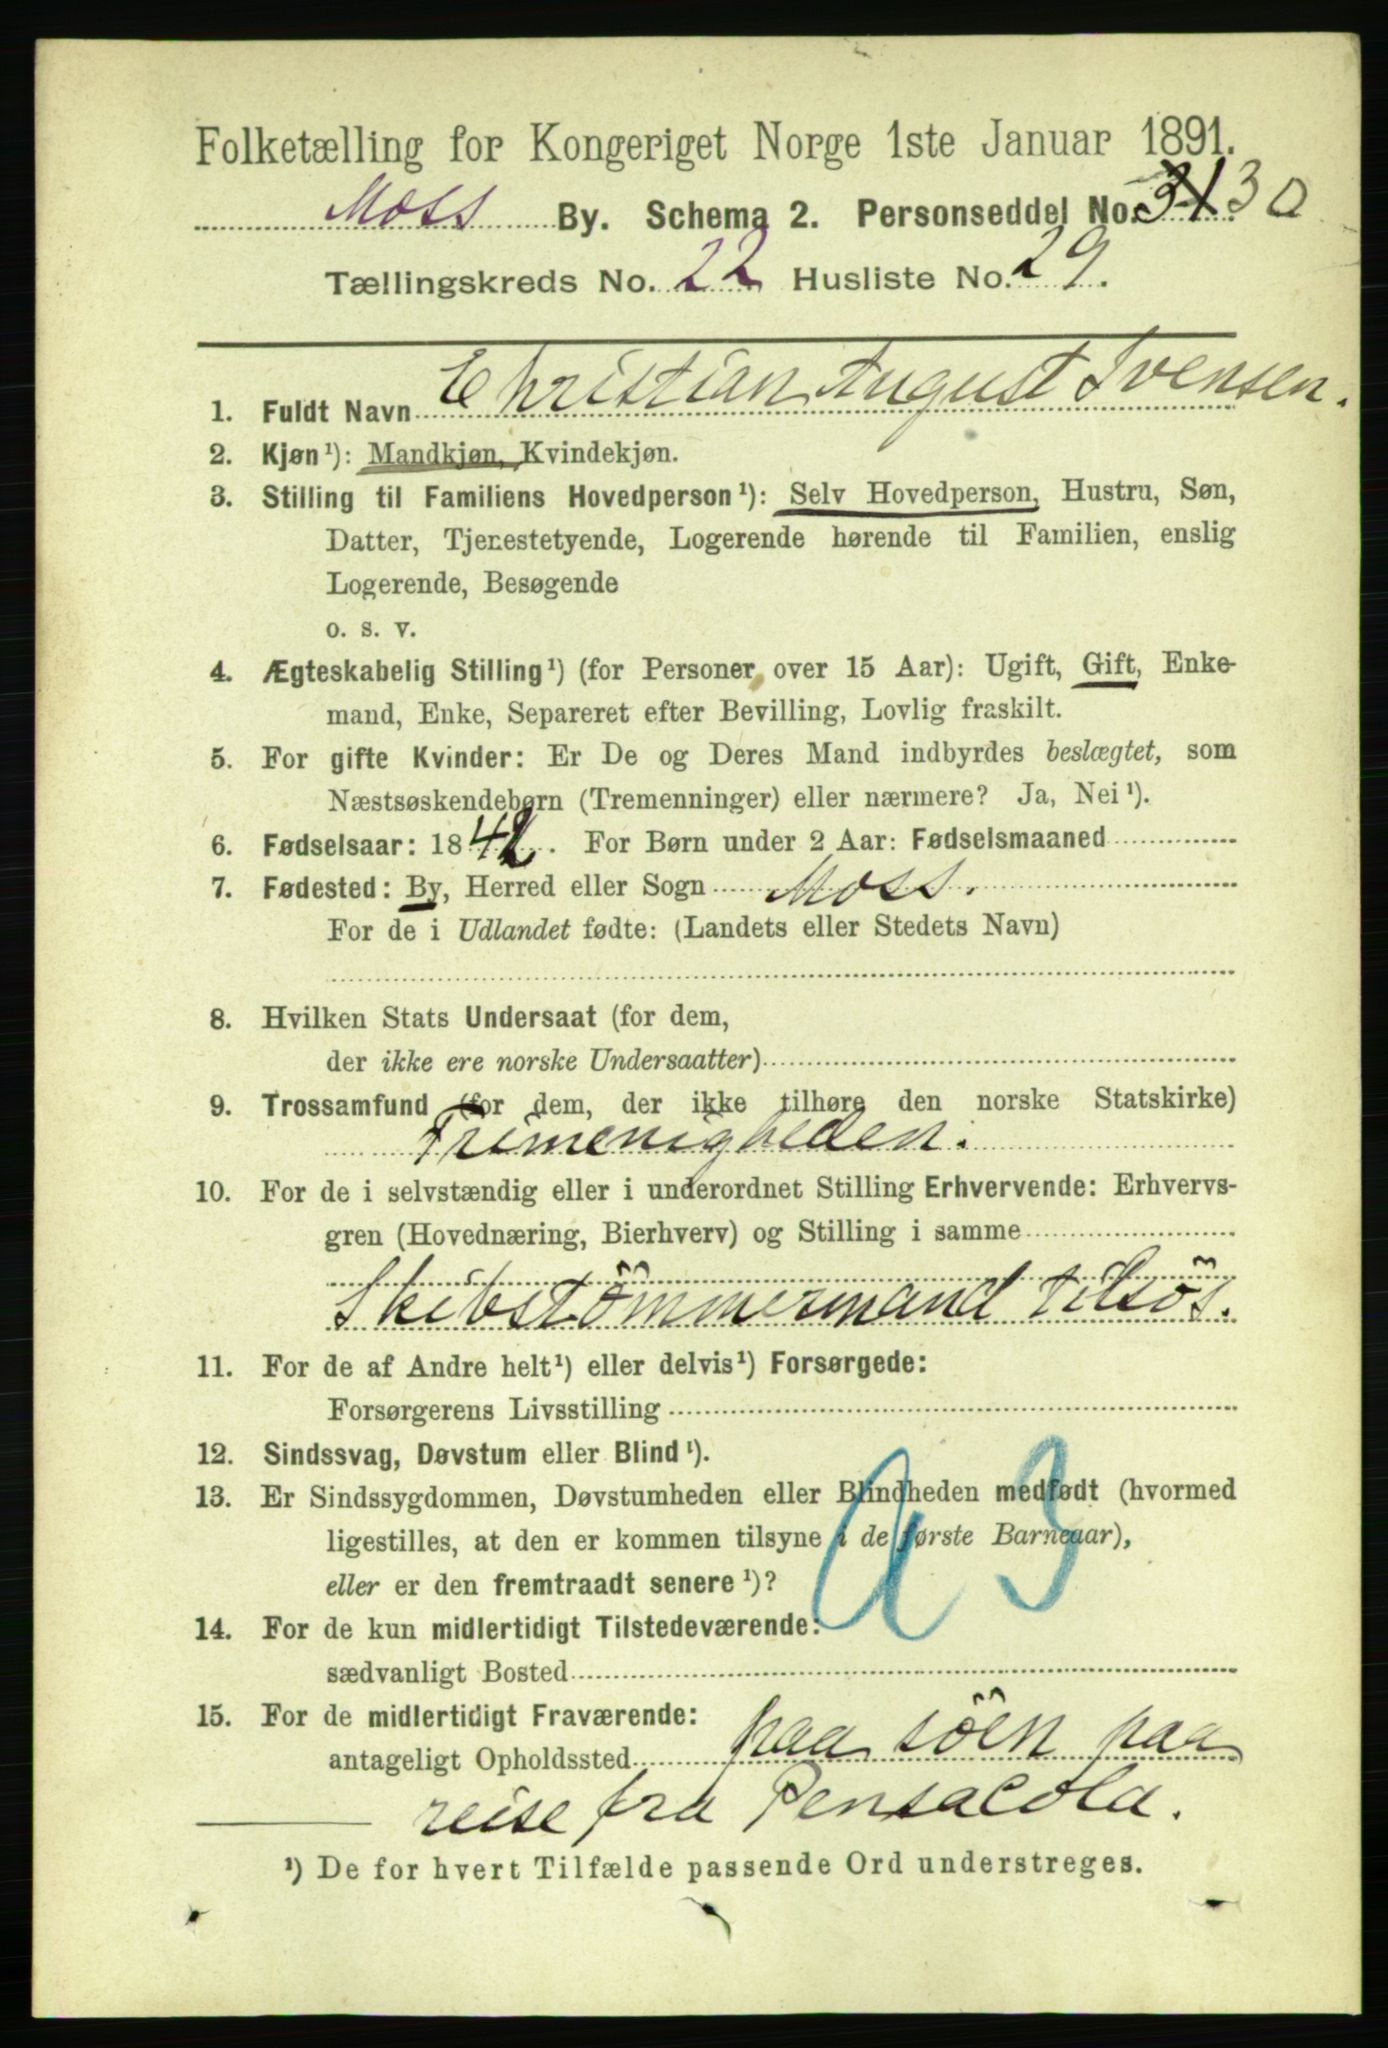 Folketælling for Kongeriget Norge 1ste Januar 1891.
Moss By. Schema 2. Personseddel No. 31 30
Tællingskreds No. 22 Husliste No. 29.
1. Fuldt Navn Christian August Svensen.
2. Kjøn ¹): Mandkjøn, Kvindekjøn.
3. Stilling til Familiens Hovedperson ¹): Selv Hovedperson, Hustru, Søn,
Datter, Tjenestetyende, Logerende hørende til Familien, enslig
Logerende, Besøgende
o. s. v.
4. Ægteskabelig Stilling ¹) (for Personer over 15 Aar): Ugift, Gift, Enke-
mand, Enke, Separeret efter Bevilling, Lovlig fraskilt.
5. For gifte Kvinder: Er De og Deres Mand indbyrdes beslægtet, som
Næstsøskendebørn (Tremenninger) eller nærmere? Ja, Nei ¹).
6. Fødselsaar: 1842. For Børn under 2 Aar: Fødselsmaaned
7. Fødested: By, Herred eller Sogn Moss.
For de i Udlandet fødte: (Landets eller Stedets Navn)
8. Hvilken Stats Undersaat (for dem,
der ikke ere norske Undersaatter)
9. Trossamfund (for dem, der ikke tilhøre den norske Statskirke)
Frimenigheden.
10. For de i selvstændig eller i underordnet Stilling Erhvervende: Erhvervs-
gren (Hovednæring, Bierhverv) og Stilling i samme
Skibstömmermand tilsös.
11. For de af Andre helt ¹) eller delvis ¹) Forsørgede:
Forsørgerens Livsstilling
12. Sindssvag, Døvstum eller Blind ¹).
13. Er Sindssygdommen, Døvstumheden eller Blindheden medfødt (hvormed
ligestilles, at den er kommen tilsyne i de første Barneaar),
eller er den fremtraadt senere ¹)?
14. For de kun midlertidigt Tilstedeværende:
sædvanligt Bosted
15. For de midlertidigt Fraværende:
antageligt Opholdssted paa söen paa
reise fra Pensacola.
¹) De for hvert Tilfælde passende Ord understreges.